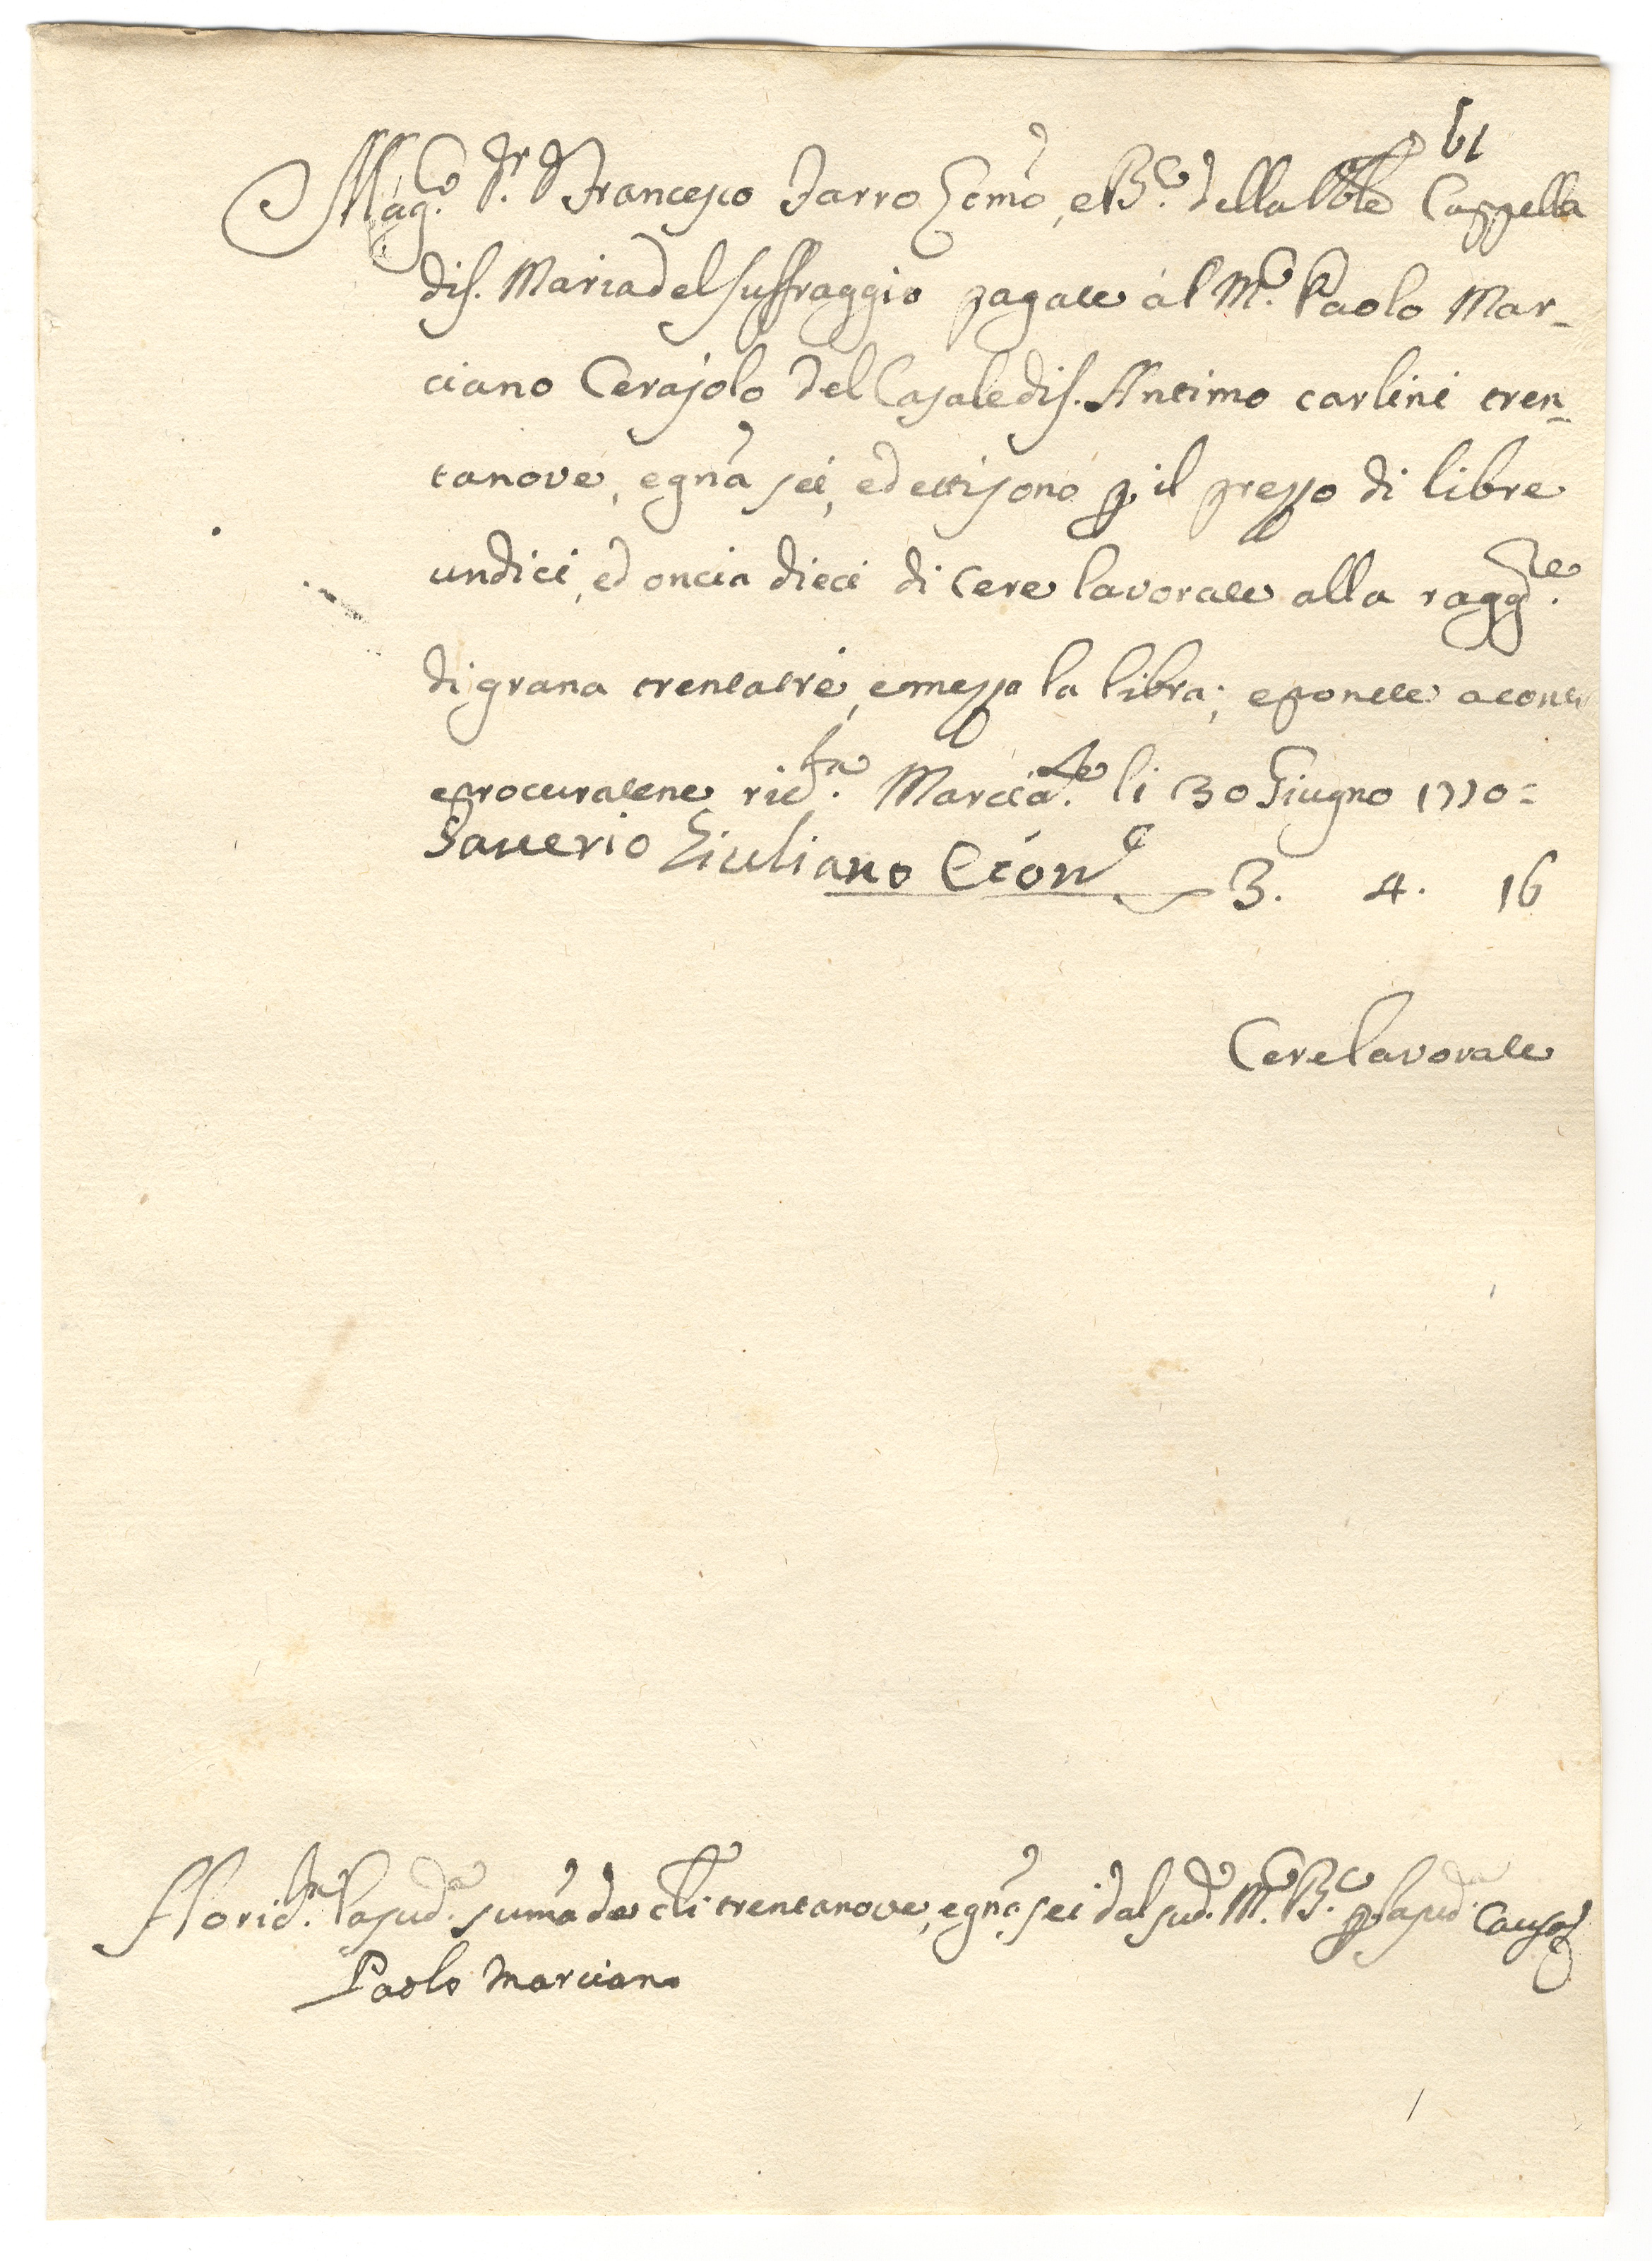 61
Mag.co Sr. D. Francesco Jarro Ecmo, e B.co della Vble Cappella
di S. Maria del Suffraggio pagate al M.co Paolo Mar-
ciano Cerajolo del Casale di S. Antimo carlini tren-
tanove, e gna sei, ed essi sono p il prezzo di libre
undici, ed oncia dieci di cere lavorate alla ragg.ne
di grana trentatrè, e mezzo la libra; e ponete a conto
e procuratene ric.ta Marcia.se li 30 Giugno 1770=
Saverio Giuliano Econ.o 3. 4. 16
Cere lavorate
Ho ric.ta la sud.a suma de cli trentanove, e gna sei dal sud.o M.co B.co p la sud.a causa
Paolo Marciano